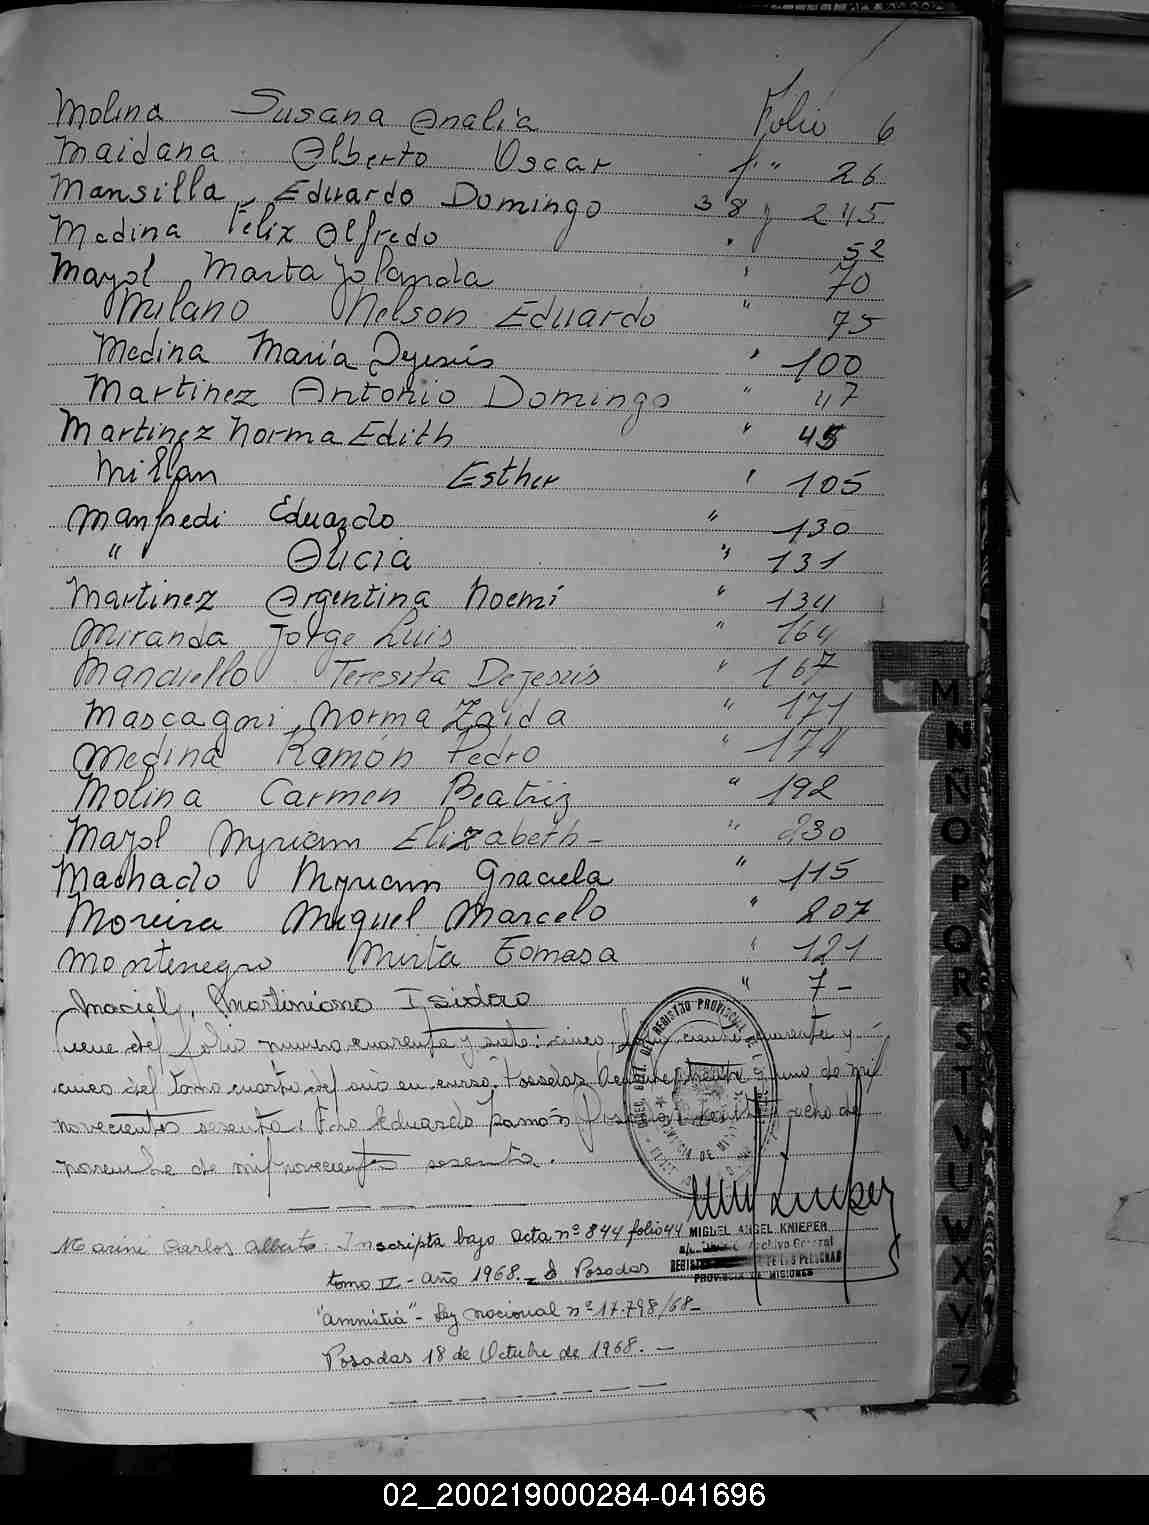 Molina Susana Analia Folio 6
Maidana Alberto Oscar f " 26
Mansilla, Eduardo Domingo 38 y 245
Medina Félix Alfredo " 52
Mayol Marta Yolanda " 70
Milano Nelson Eduardo " 75
Medina María Dejesús " 100
Martinez Antonio Domingo " 47
Martinez Norma Edith " 45
Millan Esther " 105
Manfredi Eduardo " 130
" Alicia " 131
Martinez Argentina Noemi " 134
Miranda Jorge Luis " 164
Mandiello Teresita Dejesús " 167
Mascagni, Norma Zaida " 171
Medina Ramón Pedro " 174
Molina Carmen Beatriz " 192
Mayol Myriam Elizabeth - " 230
Machado Myriam Graciela " 115
Moreira Miguel Marcelo " 207
Montenegro Mirta Tomasa " 121
Maciel, Martiniano Isidro " 7 -
Viene del folio numero cuarenta y siete: cinco, ciento cuarenta y
cinco del tomo cuarto del año en curso. Posadas y uno de mil
novecientos sesenta. Fdo Eduardo Ramón ocho de
noviembre de mil novecientos sesenta.
Marini Carlos Alberto - Inscripta bajo acta nº 844 folio 44
tomo IV - año 1968. - Posadas
"amnistia" - Ley nacional nº 17.798/68 -
Posadas 18 de Octubre de 1968. -
MIGUEL ANGEL KNIEPER
Archivo General
DE LAS PERSONAS
PROVINCIA DE MISIONES
M
N
Ñ
O
P
Q
R
S
T
V
U
W
X
Y
Z
02_200219000284-041696